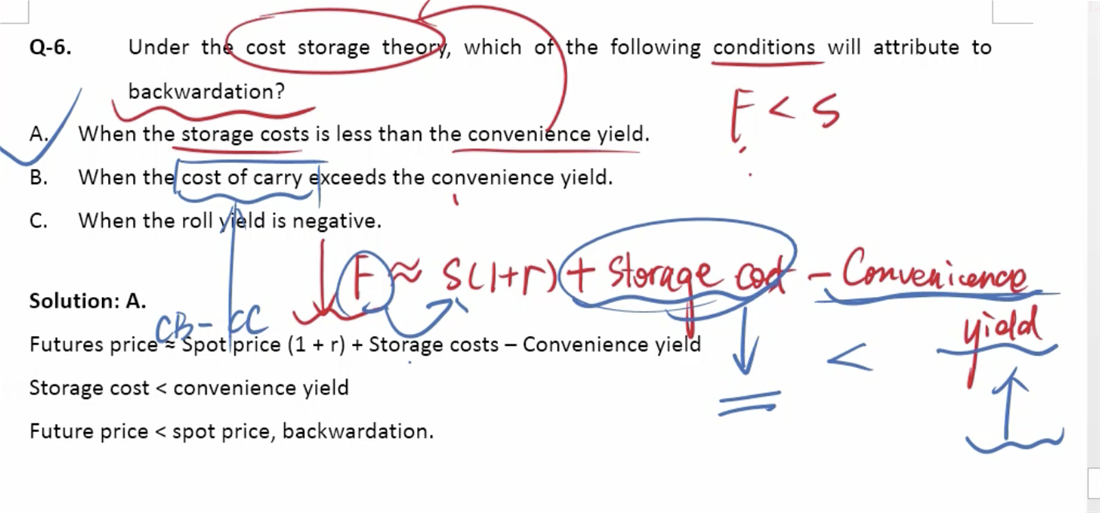 Q-6. Under the cost storage theory, which of the following conditions will attribute to
backwardation?
F < S
A. When the storage costs is less than the convenience yield.
B. When the cost of carry exceeds the convenience yield.
C. When the roll yield is negative.
F ≈ S(1+r) + Storage cost – Convenience
yield
<
Solution: A.
CB – CC
Futures price ≈ Spot price (1 + r) + Storage costs – Convenience yield
Storage cost < convenience yield
Future price < spot price, backwardation.